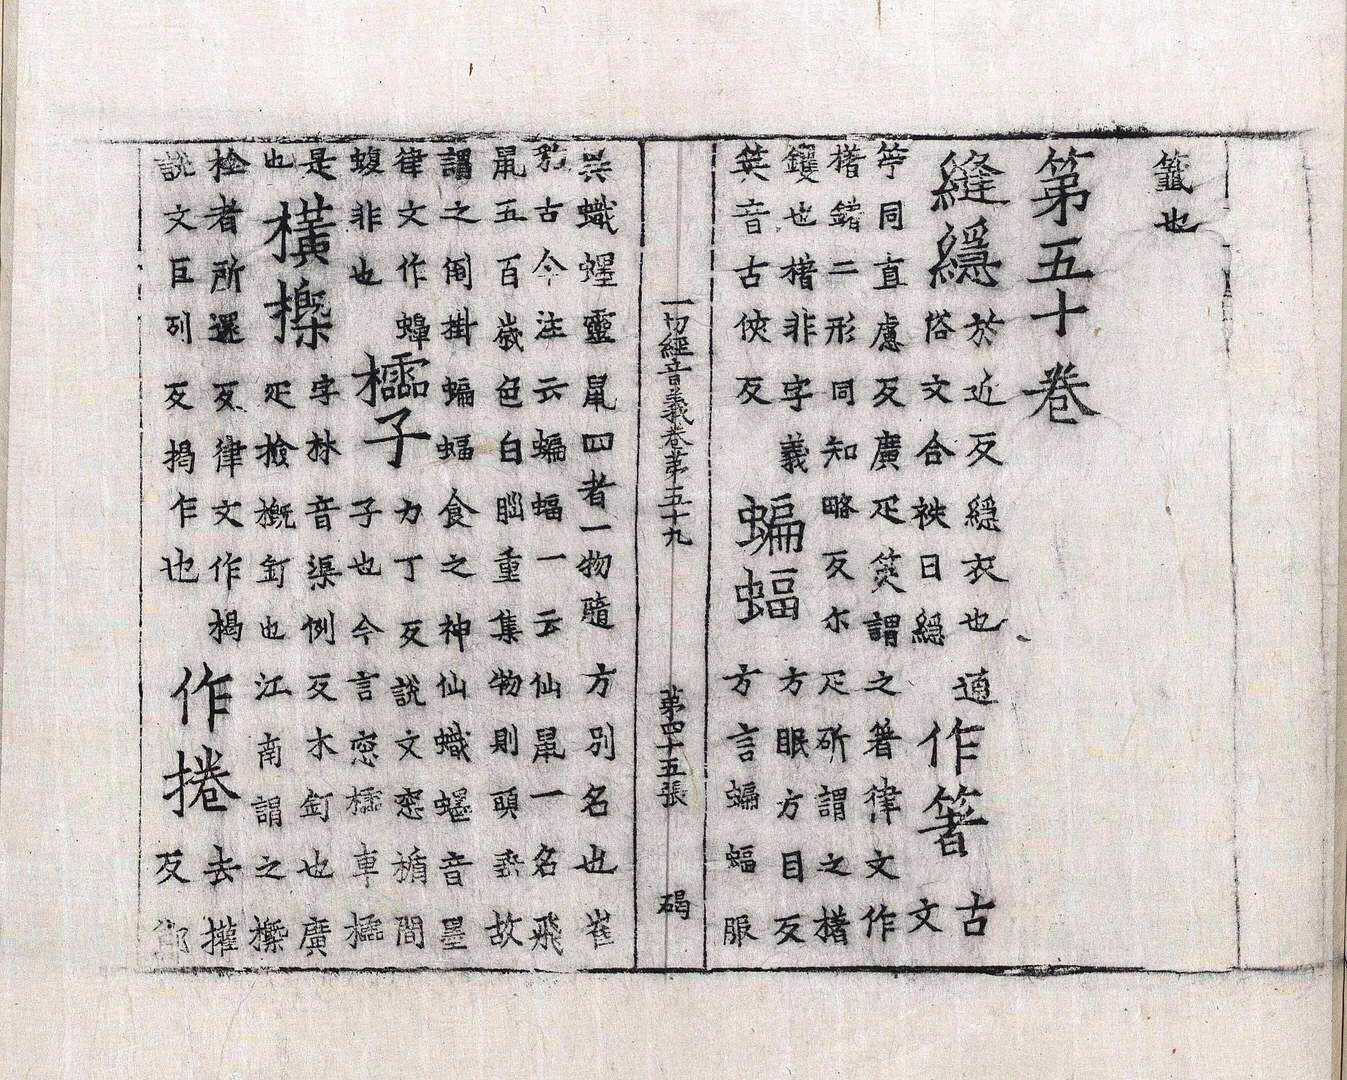 籠也
第五十卷
縫䌥 於近反䌥衣也通俗文合袟曰䌥 作箸 古文
筯同直慮反廣疋筴謂之箸律文作
櫡鐯二形同知略反尒疋斫謂之櫡
钁也櫡非字義 方眠方目反
筴音古俠反 蝙蝠 方言蝙蝠服
一切經音義卷第五十九 第四十五張 碣
翼蟙䘃靈鼠四者一物隨方別名也崔
豹古今注云蝙蝠一云仙鼠一名飛
鼠五百歲色白腦重集物則頭垂故
謂之倒掛蝙蝠食之神仙蟙䘃音墨
律文作蟬 力丁反說文窓楯間
蝮非也 櫺子 子也今言窓櫺車櫺
是 字林音渠例反木釘也廣
也 橫㯕 疋撿概釘也江南謂之㯕
栓者所還反律文作楬 去權
說文巨列反楬乍也 作捲 反鄣